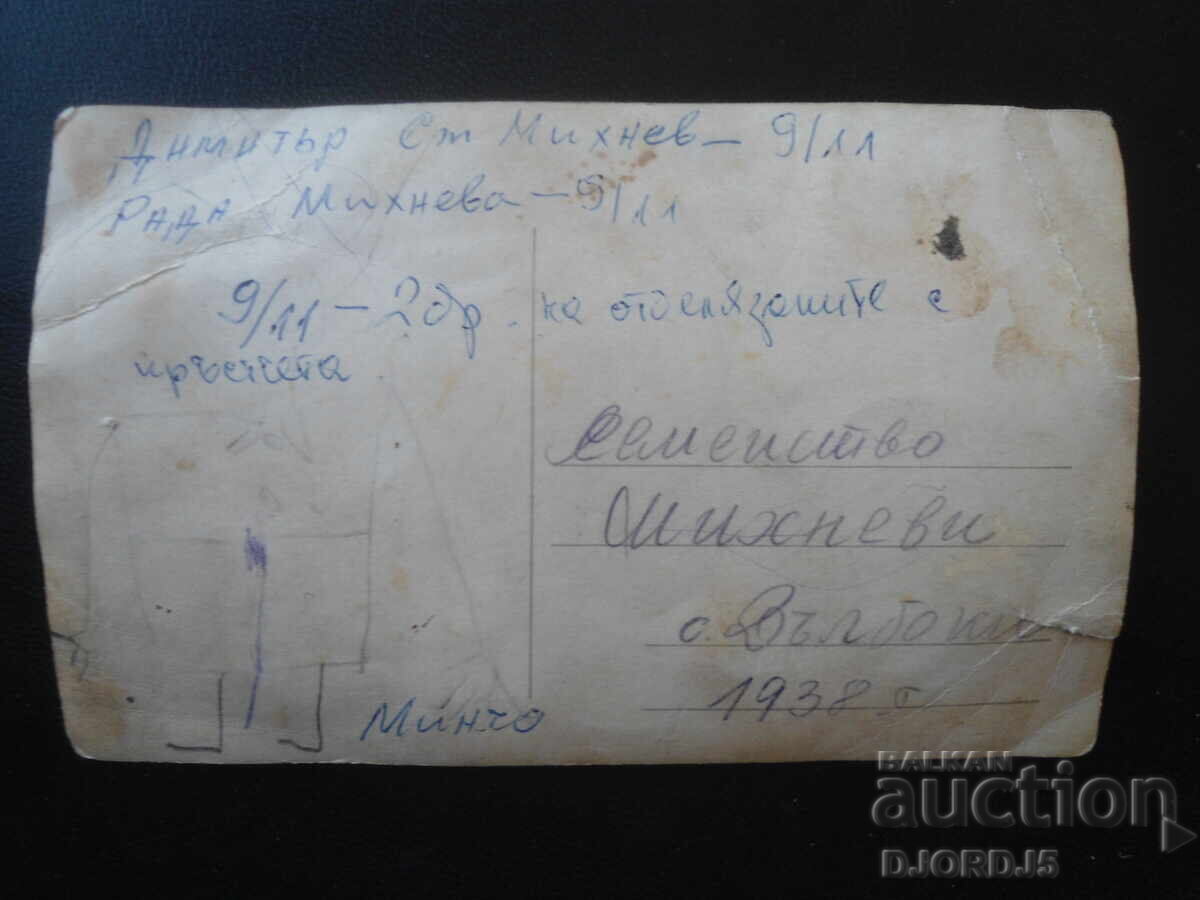 Димитър Ст Михнев – 9/11
Рада Михнева – 9/11
9/11 – 2 бр. на отбелязаните с
кръстчета.
Семейство
Михневи
с. Дълбоки
1938 г
Минчо
BALKAN
auction
DJORDJ5